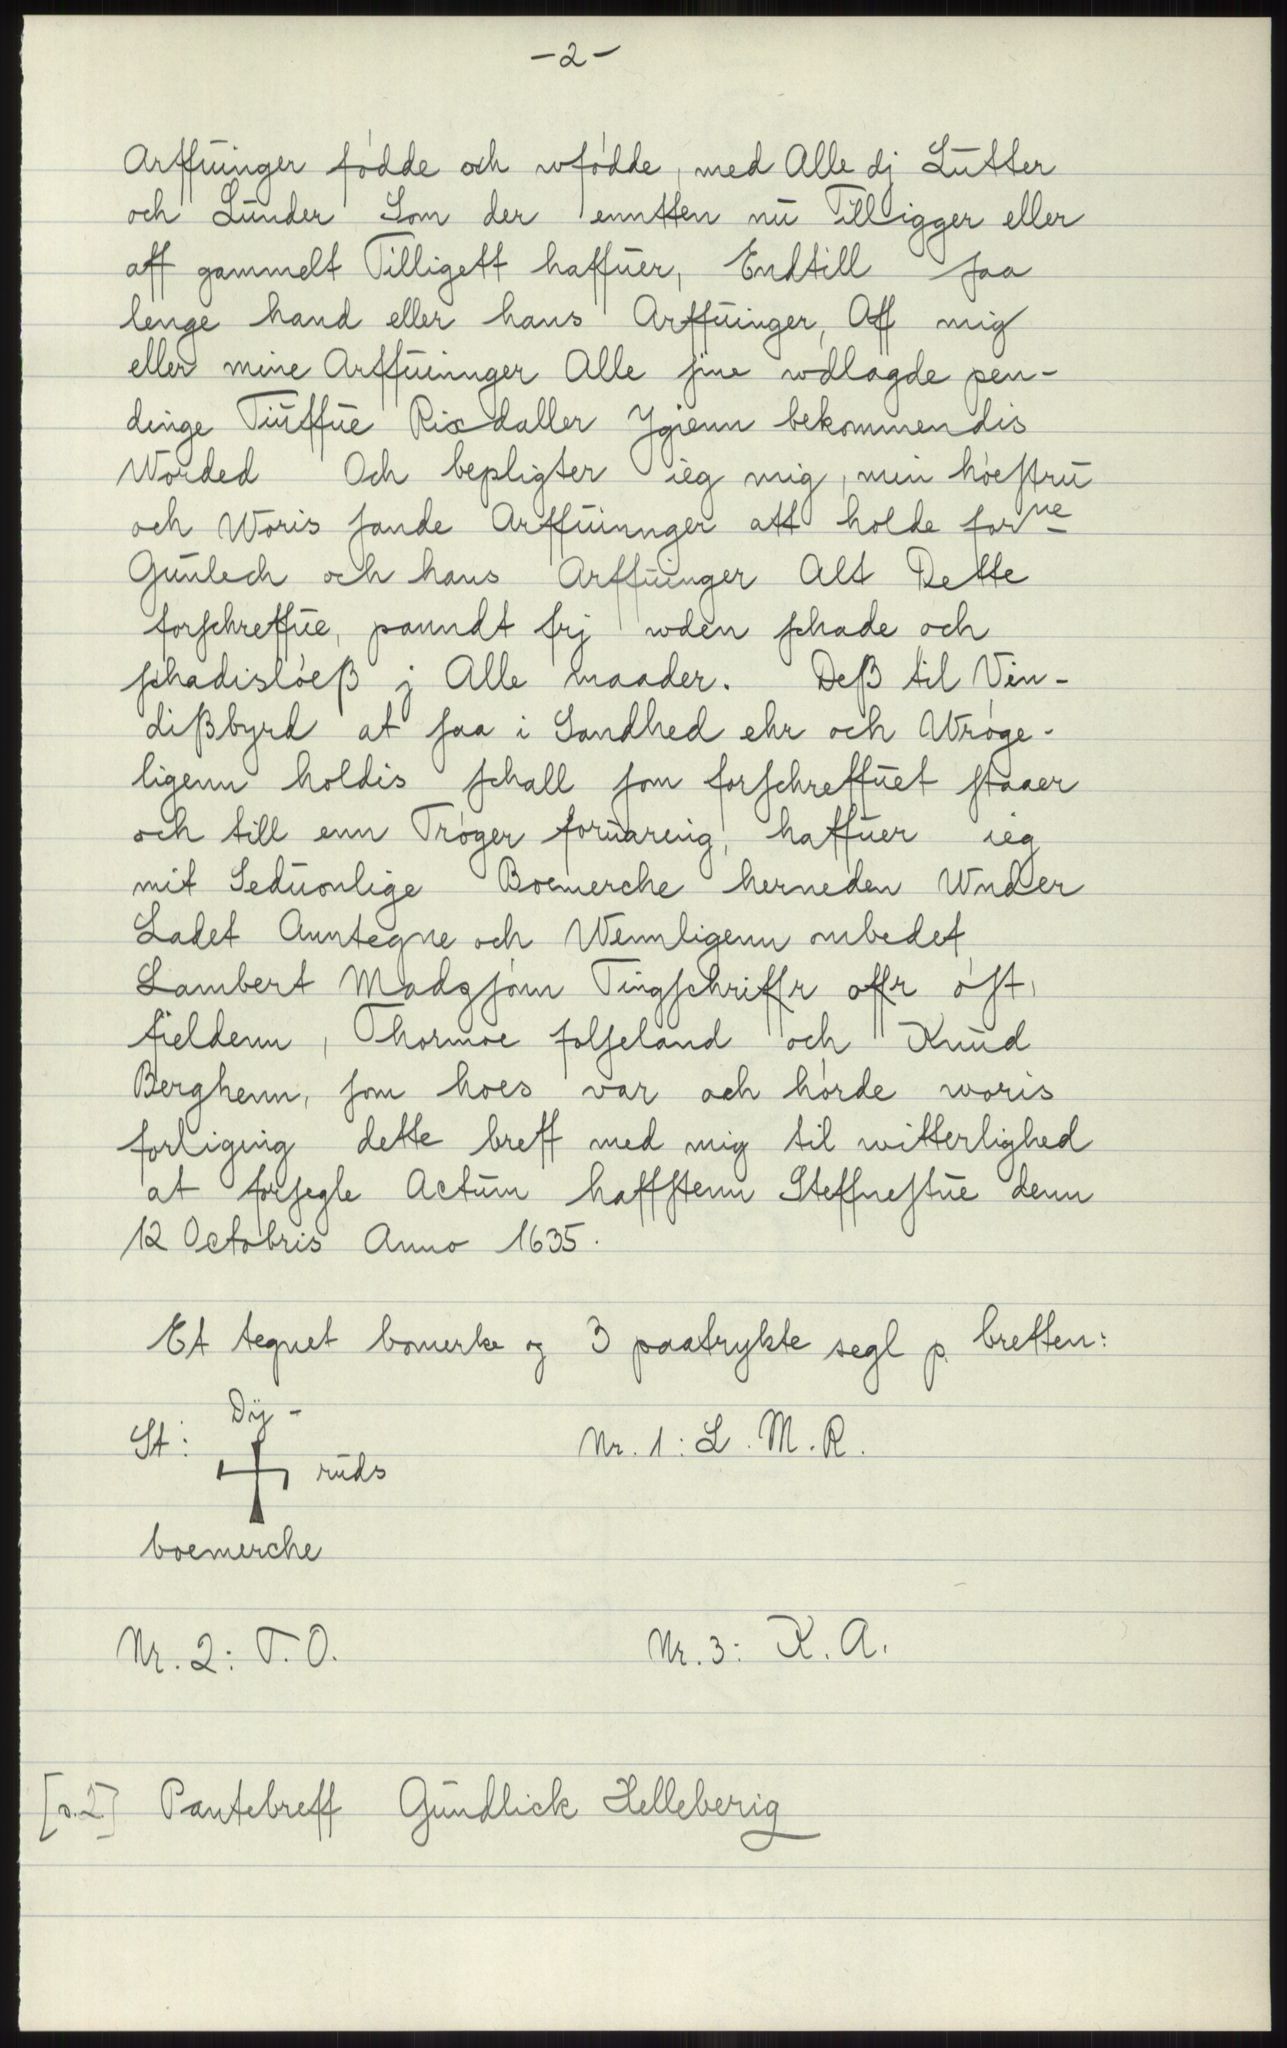 - 2 -
Arffůinger fódde och wfódde, med Alle dj Lůtter
och Lůnder Som der enntten nů Tilligger eller
aff gammelt Tilligett haffůer, Endtill saa
lenge hand eller hans Arffůinger, Aff mig
eller mine Arffůinnger Alle sine wdlagde pen-
dinge Tiůffůe Rixdaller Ygienn bekommendis
Worded Och bepligter ieg mig, min hóestrů
och Woris sande Arffůinnger att holde forne
Gůnlech och hans Arffůinger Alt Dette
forschreffůe, panndt frj wden schade och
schadislóeß j Alle maader. Deß til Vin-
dißbyrd at saa i Sandhed ehr och Wróge-
ligenn holdis schall som forschreffůet staaer
och till enn Tróger forůaring, haffůer ieg
mit Sedůonlige Boemerche herneden Wnder
Ladet Anntegne och Wennligenn ombedet
Lambert Madssónn Tingschriffr offr óst,
fieldenn, Thormoe folseland och Knůd
Berghenn, som hoes var och hórde woris
forliging dette breff med mig til witterlighed
at forsegle Actům haffstenn Steffnestůe denn
12 Octobris Anno 1635.
Et tegnet bomerke og 3 paatrykte segl p. bretten:
Dÿ-
St: růds
Nr. 1: L. M. R.
boemerche
Nr. 2: T. O.
Nr. 3: K. A.
[s. 2] Pantebreff Gůndlick Helleberig